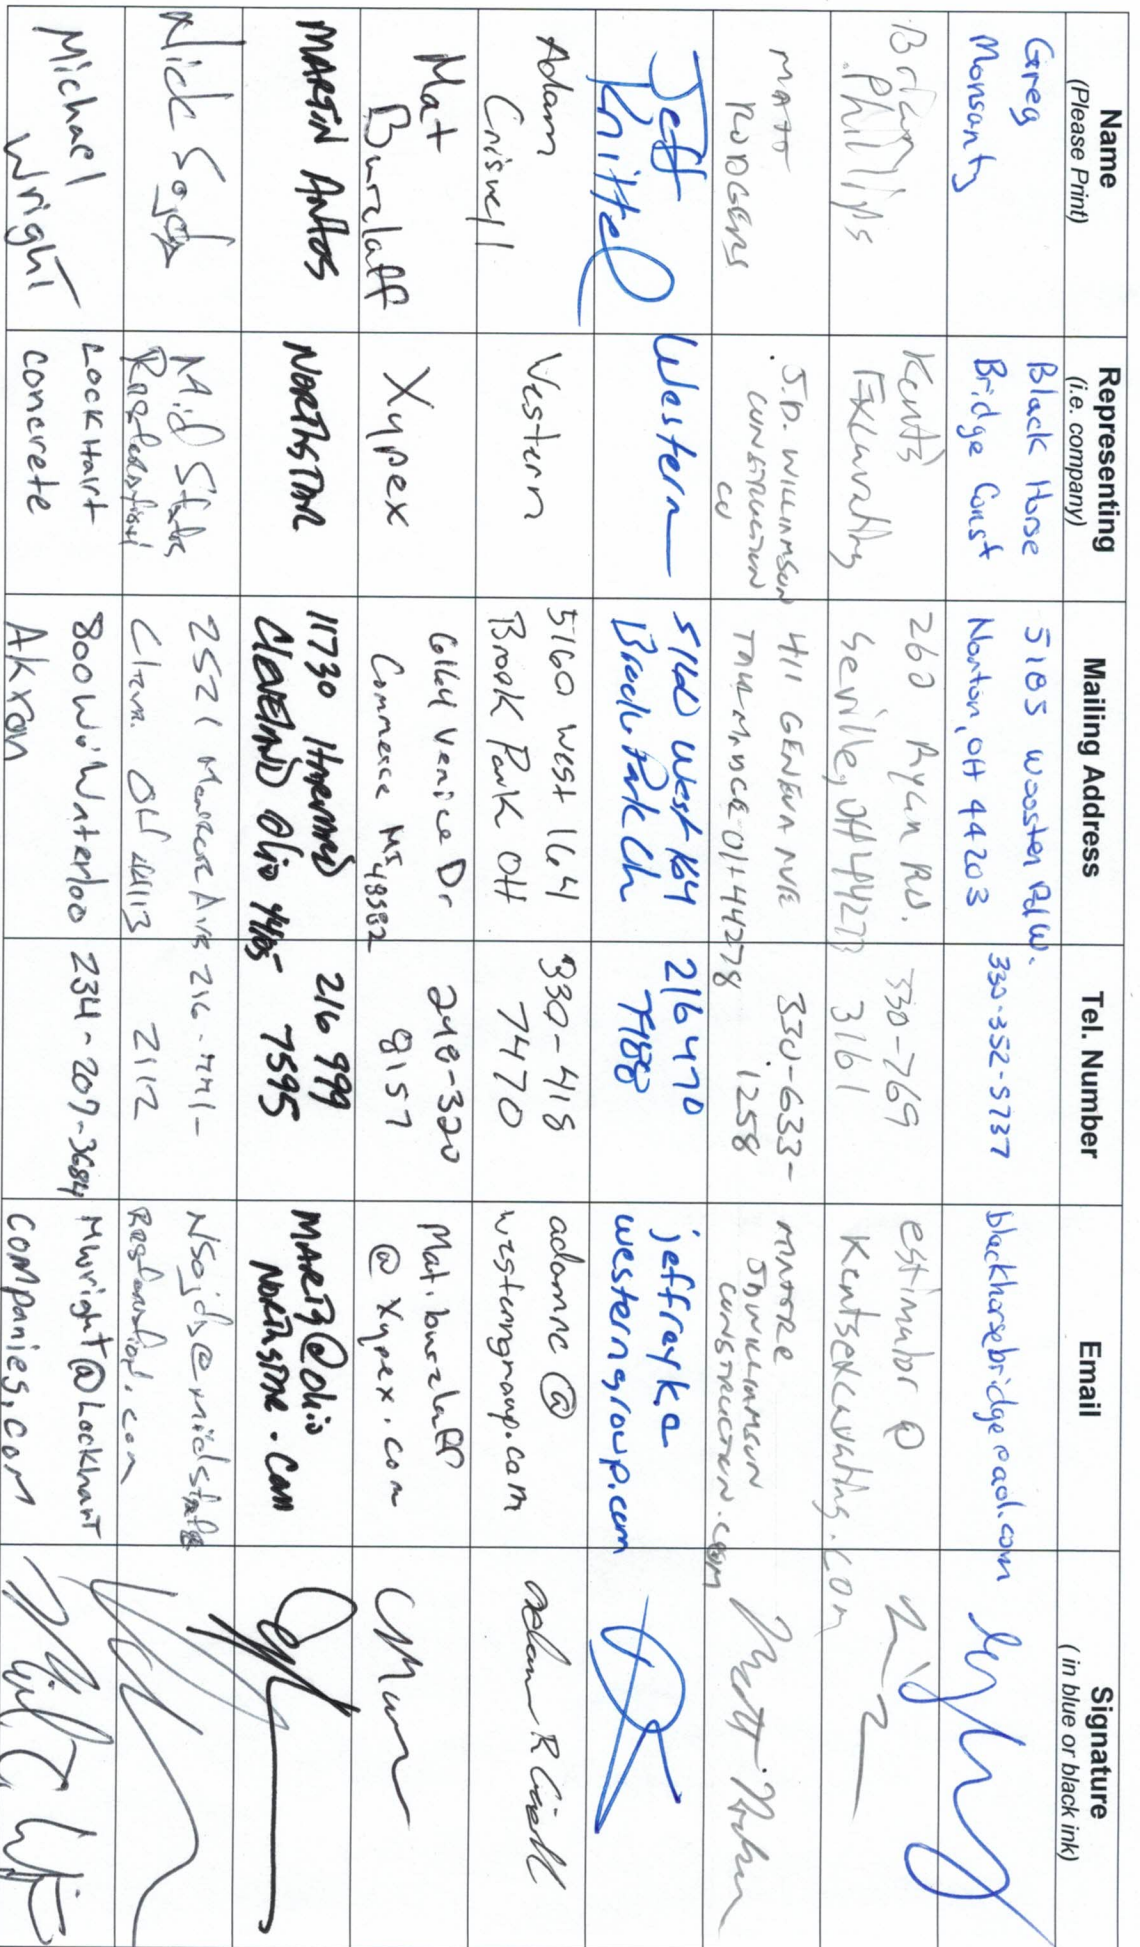 Name
(Please Print)
Representing
(i.e. company)
Mailing Address
Tel. Number
Email
Signature
(in blue or black ink)
Greg
Monsanty
Black Horse
Bridge Const
5185 Wooster Rd W.
Norton, OH 44203
330-352-5737
blackhorsebridge@aol.com
Brian
Phillips
Kent's
Excavating
260 Ryan Rd.
Seville, OH 44273
330-769
3161
estimator@
Kentsexcavating.com
MATT
RODGERS
J.D. WILLIAMSON
CONSTRUCTION
CO
411 GENEVA AVE
TALLMADGE OH 44278
330-633-
1258
MATTR@
JDWILLIAMSON
CONSTRUCTION.COM
Jeff
Knittel
Western
5160 West 164
Brook Park Oh
216 470
7188
jeffreyk@
westerngroup.com
Adam
Criswell
Western
5160 West 164
Brook Park OH
330-418
7470
adamc@
westerngroup.com
Mat
Burzlaff
Xypex
6164 Venice Dr
Commerce MI 48382
248-320
8157
Mat.burzlaff
@xypex.com
MARTIN ANTOS
NORTHSTAR
11730 HARVARD
CLEVELAND Ohio 44105
216 999
7595
MARTY@Ohio
NORTHSTAR.COM
Nick
Mid States
Restoration
2521
OH 44113
216-
2112
Restoration.com
Michael
Wright
Lockhart
concrete
800 W. Waterloo
Akron
234-207-3684
Mwright@Lockhart
companies.com